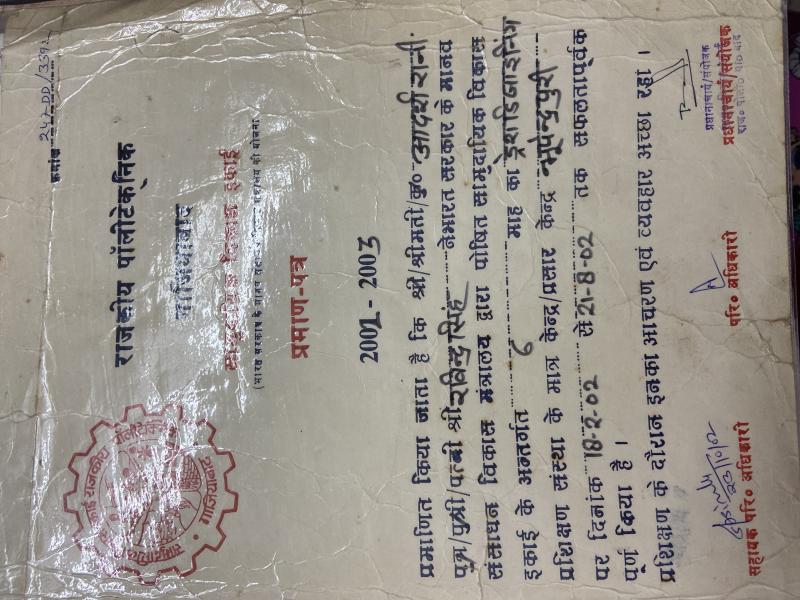 क्रमांक 242 DD/339
राजकीय पॉलीटेकनिक
गाजियाबाद
सामुदायिक विकास इकाई
(भारत सरकार के मानव संसाधन विकास मंत्रालय की योजना)
प्रमाण-पत्र
2002 - 2003
प्रमाणित किया जाता है कि श्री/श्रीमती/कु० आदर्श रानी
पुत्र/पुत्री/पत्नी श्री रविन्द्र सिंह ने भारत सरकार के मानव
संसाधन विकास मंत्रालय द्वारा पोषित सामुदायिक विकास
इकाई के अन्तर्गत 6 माह का ड्रेस डिजाइनिंग
प्रशिक्षण संस्था के मात्र केन्द्र/प्रसार केन्द्र भूपेन्द्र पुरी
पर दिनांक 18-2-02 से 21-8-02 तक सफलतापूर्वक
पूर्ण किया है ।
प्रशिक्षण के दौरान इनका आचरण एवं व्यवहार अच्छा रहा ।
सहायक परि० अधिकारी
परि० अधिकारी
प्रधानाचार्य/संयोजक
प्रधानाचार्य/संयोजक